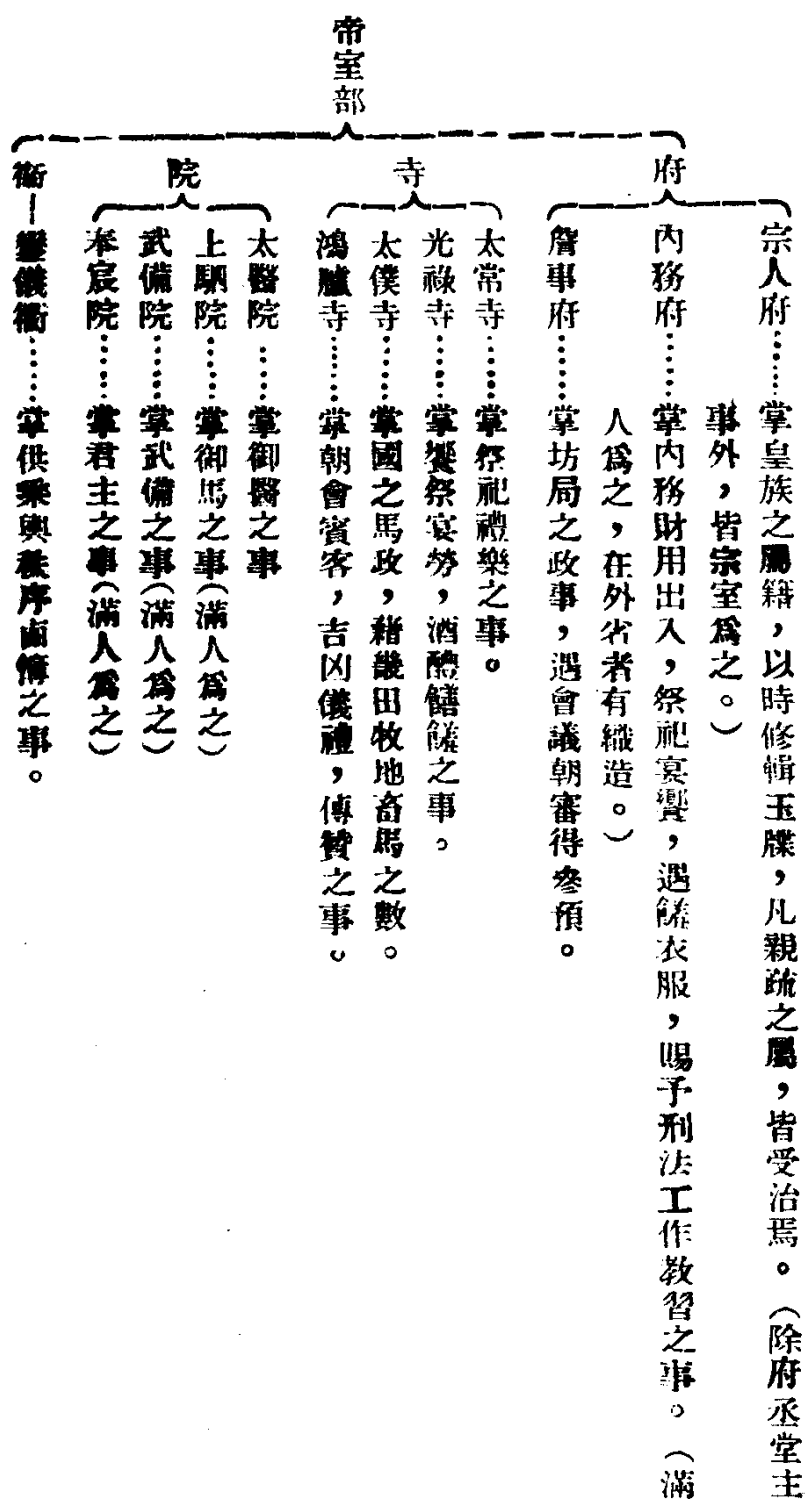 帝室部
府
宗人府……掌皇族之屬籍，以時修輯玉牒，凡親疏之屬，皆受治焉。（除府丞堂主
事外，皆宗室爲之。）
內務府……掌內務財用出入，祭祀宴饗，遇饈衣服，賜予刑法工作教習之事。（滿
人爲之，在外省者有織造。）
詹事府……掌坊局之政事，遇會議朝審得參預。
寺
太常寺……掌祭祀禮樂之事。
光祿寺……掌饗祭宴勞，酒醴饍饈之事。
太僕寺……掌國之馬政，籍畿田牧地畜馬之數。
鴻臚寺……掌朝會賓客，吉凶儀禮，傳贊之事。
院
太醫院……掌御醫之事
上駟院……掌御馬之事（滿人爲之）
武備院……掌武備之事（滿人爲之）
奉宸院……掌君主之事（滿人爲之）
衞—鑾儀衞……掌供乘輿秩序鹵簿之事。